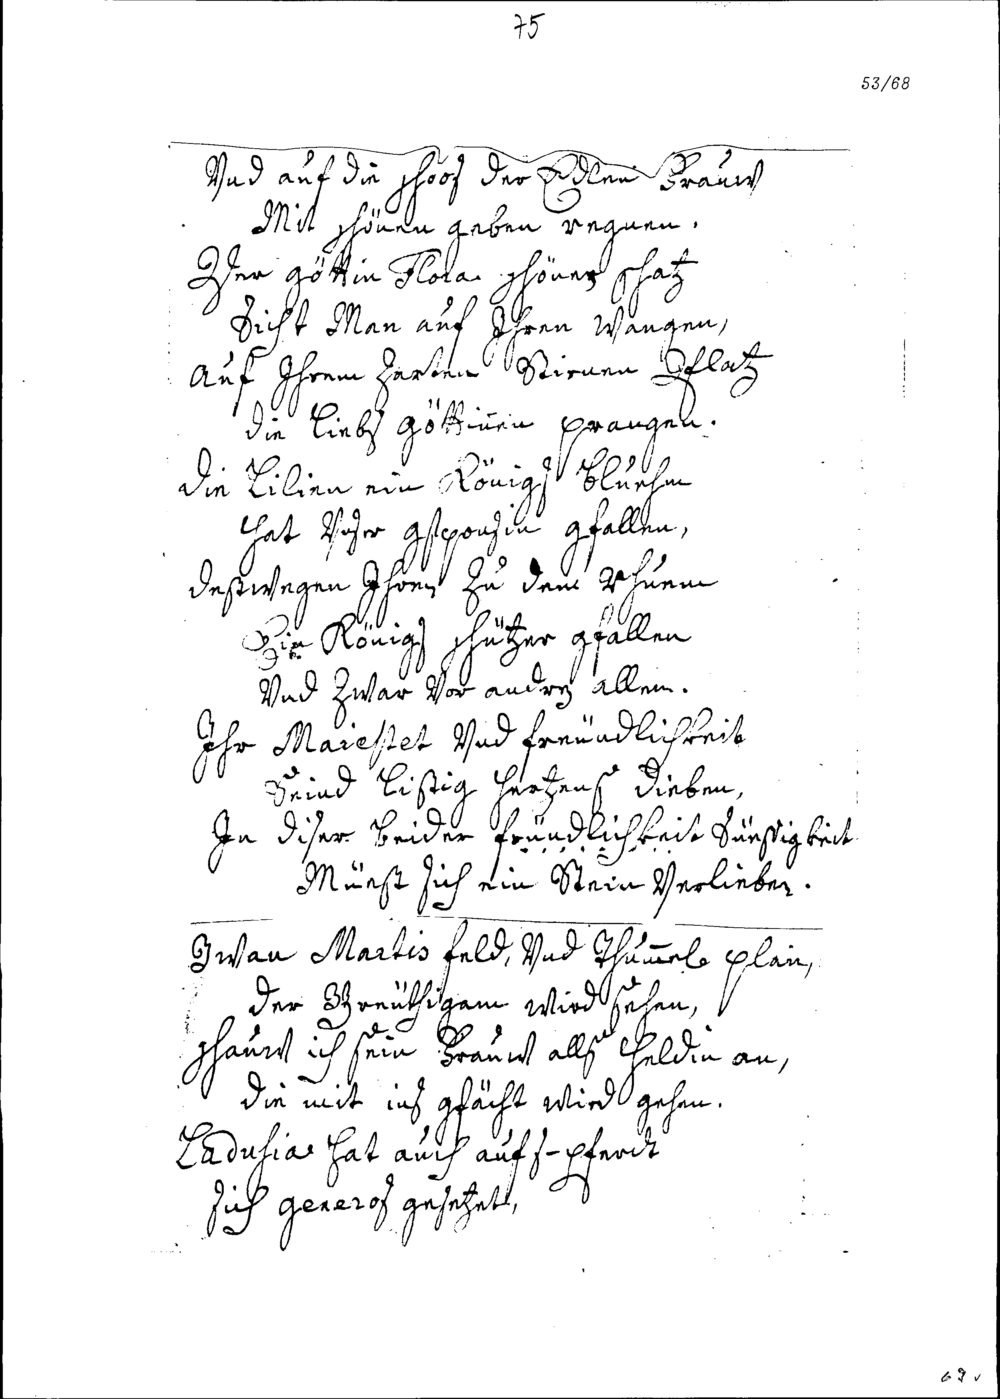 75
53/68
Vnd auf die schoos der Edlen Brauw
Mit schönen geben regnen.
Der göttin Flora schöner schatz
Sicht Man auf Ihren Wangen,
Auf Ihrem Zarten Stirnen Pflatz
die Liebs göttinen prangen.
Die Lilien ein Königs bluehm
hat Vnser gsponsin gfallen,
deßwegen Ihren Zu dem rhuem
Ein Königs schützer gfallen
Vnd Zwar Vor andren allen.
Ihr Maiestet Vnd freündlichkeit
Seind listig hertzens dieben,
In diser beider fründlichkeit Süessigkeit
Müest sich ein Stein Verlieben.
Zwar Martis feld, Vnd Thummel plan,
der Breüthigam wird sehen,
schauw ich sein Brauw alls heldin an,
die mit ins gfächt wird gehen.
Ladusia hat auch aufs-pferdt
sich generos gesetzet,
69v